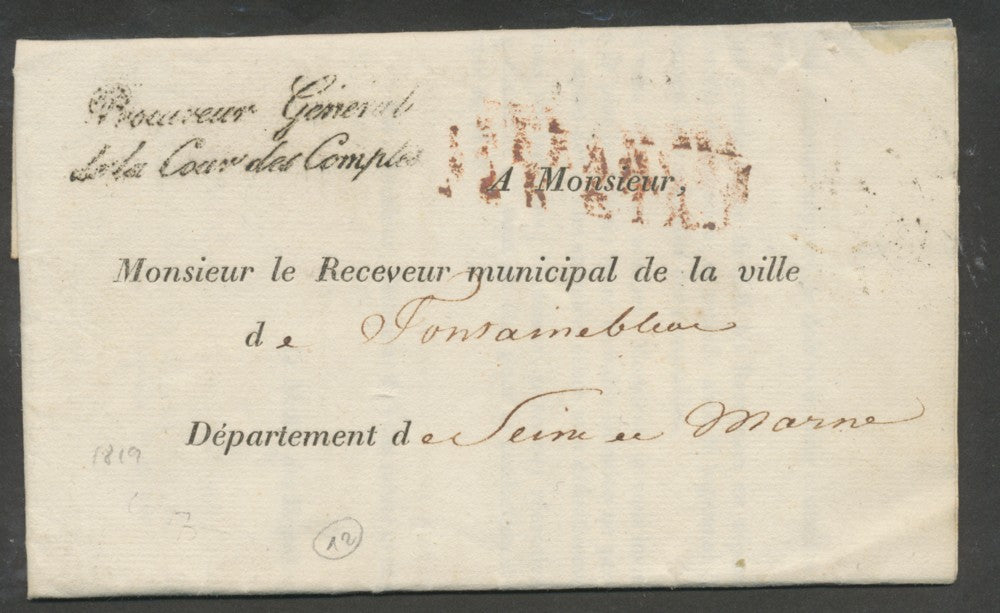 Procureur Général
de la Cour des Comptes
A Monsieur,
Monsieur le Receveur municipal de la ville
de Fontainebleau
Département de Seine et Marne
1819
12